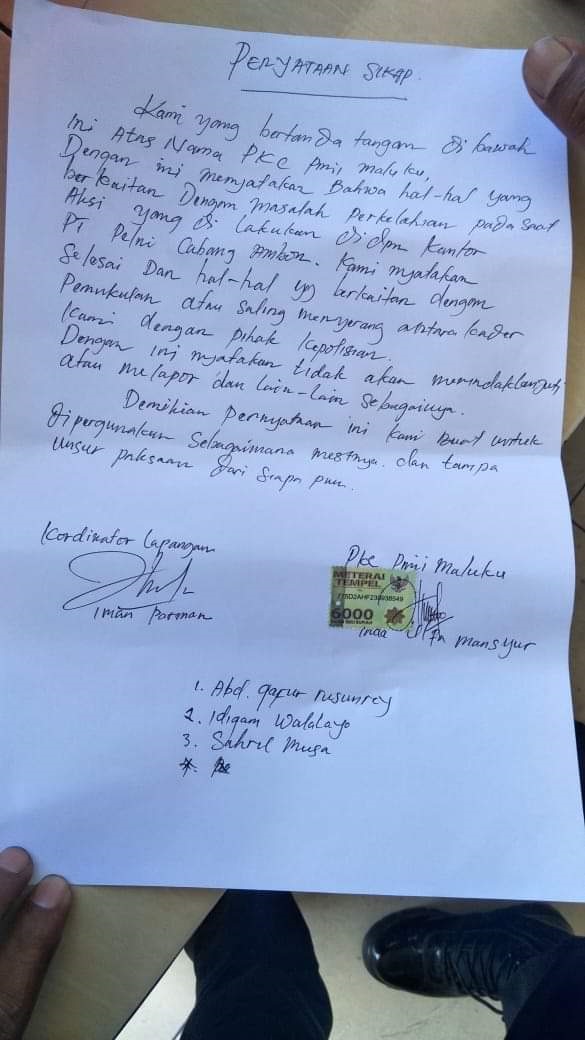 PERYATAAN SIKAP.
Kami yang bertanda tangan di bawah
Ini Atas Nama PKC PMII maluku,
Dengan ini menyatakan Bahwa hal-hal yang
berkaitan Dengan masalah perkelahian pada saat
Aksi yang di lakukan didpn kantor
PT Pelni Cabang Ambon. Kami nyatakan
Selesai Dan hal-hal yg berkaitan dengan
Pemukulan atau saling menyerang antara kader
Kami dengan pihak kepolisian.
Dengan ini nyatakan tidak akan menindaklanjuti
atau melapor dan lain-lain sebagainya.
Demikian pernyataan ini kami buat untuk
dipergunakan sebagaimana mestinya. dan tampa
unsur paksaan dari siapa pun.
Kordinator Lapangan
Iman Parman
PKC PMII Maluku
METERAI
TEMPEL
6000
mansyur
1. Abd. gafur rusunrey
2. Idigam Walalayo
3. Sahril Musa